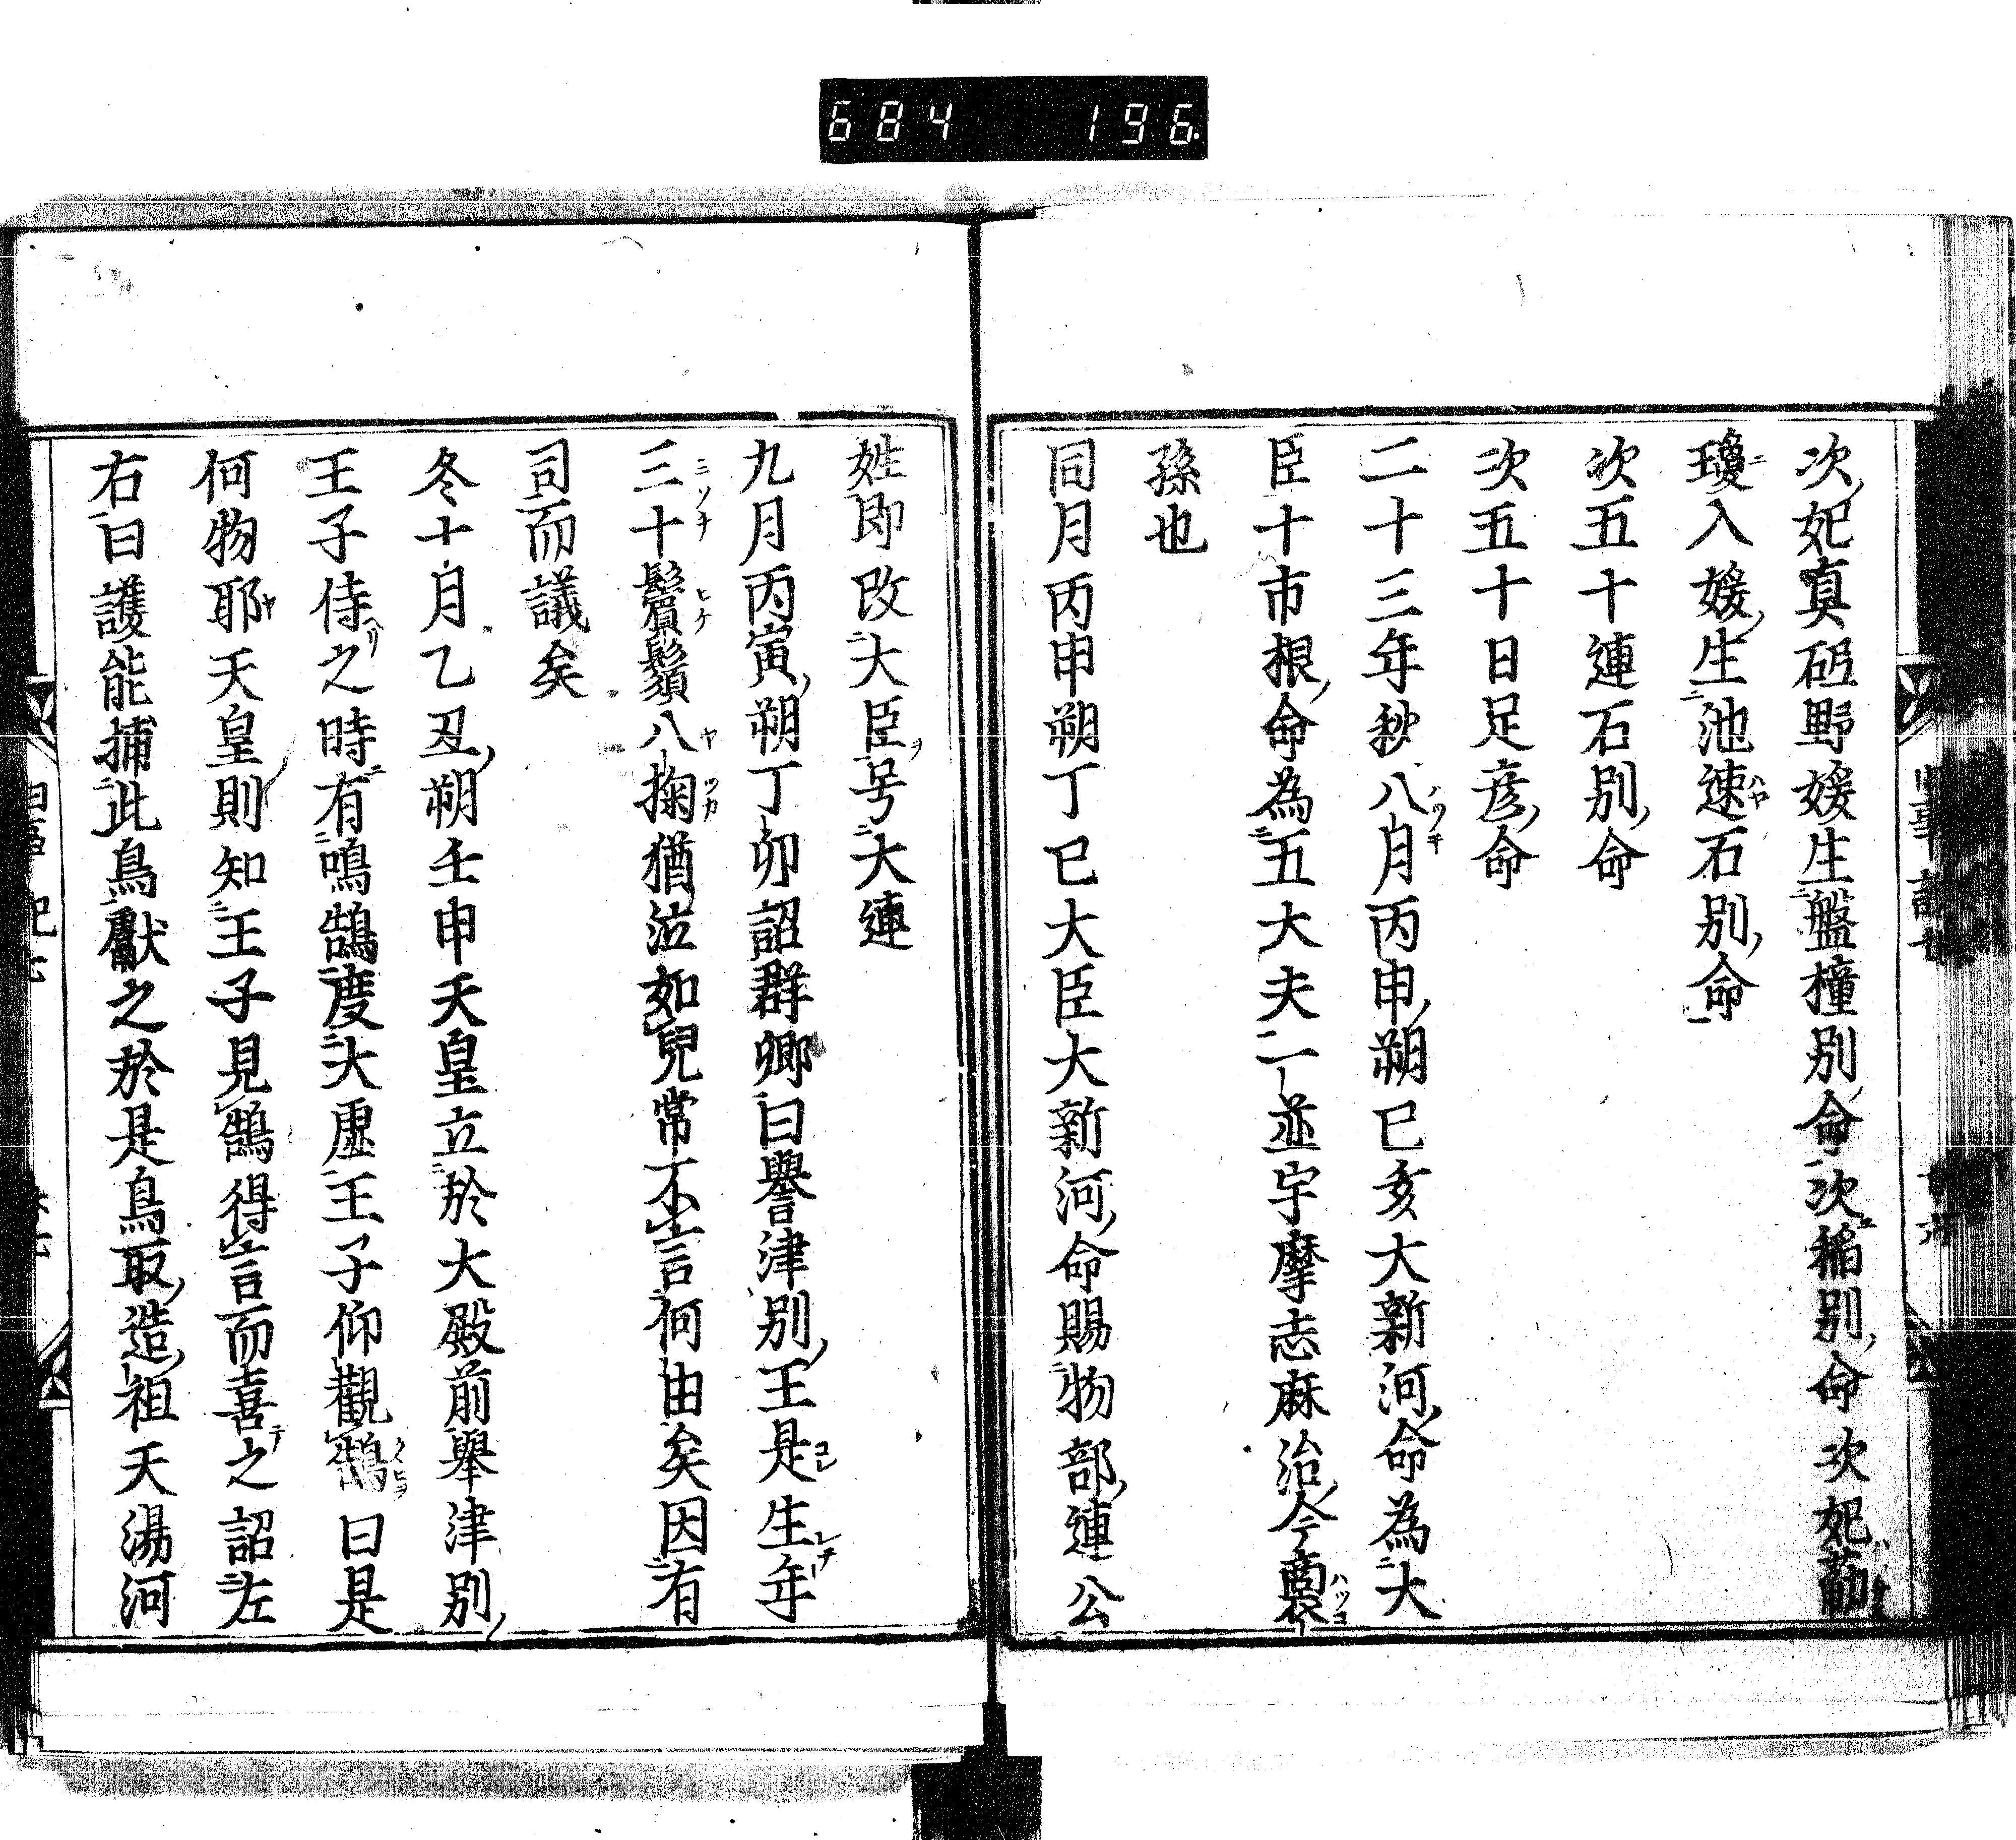 684 196
次妃真砥野媛生盤撞別命次稲別命次妃薊
瓊入媛生池速石別命
次五十連石別命
次五十日足彦命
二十三年秋八月丙申朔已亥大新河命為大
臣十市根命為五大夫一並宇摩志麻治今裔
孫也
同月丙申朔丁巳大臣大新河命賜物部連公
姓即改大臣号大連
九月丙寅朔丁卯詔群卿曰譽津別王是生年
三十鬢鬚八掬猶泣如兒常不言何由矣因有
司而議矣
冬十月乙丑朔壬申天皇立於大殿前舉津別
王子侍之時有鳴鵠度大虚王子仰觀鵠曰是
何物耶天皇則知王子見鵠得言而喜之詔左
右曰護能捕此鳥獻之於是鳥取造祖天湯河